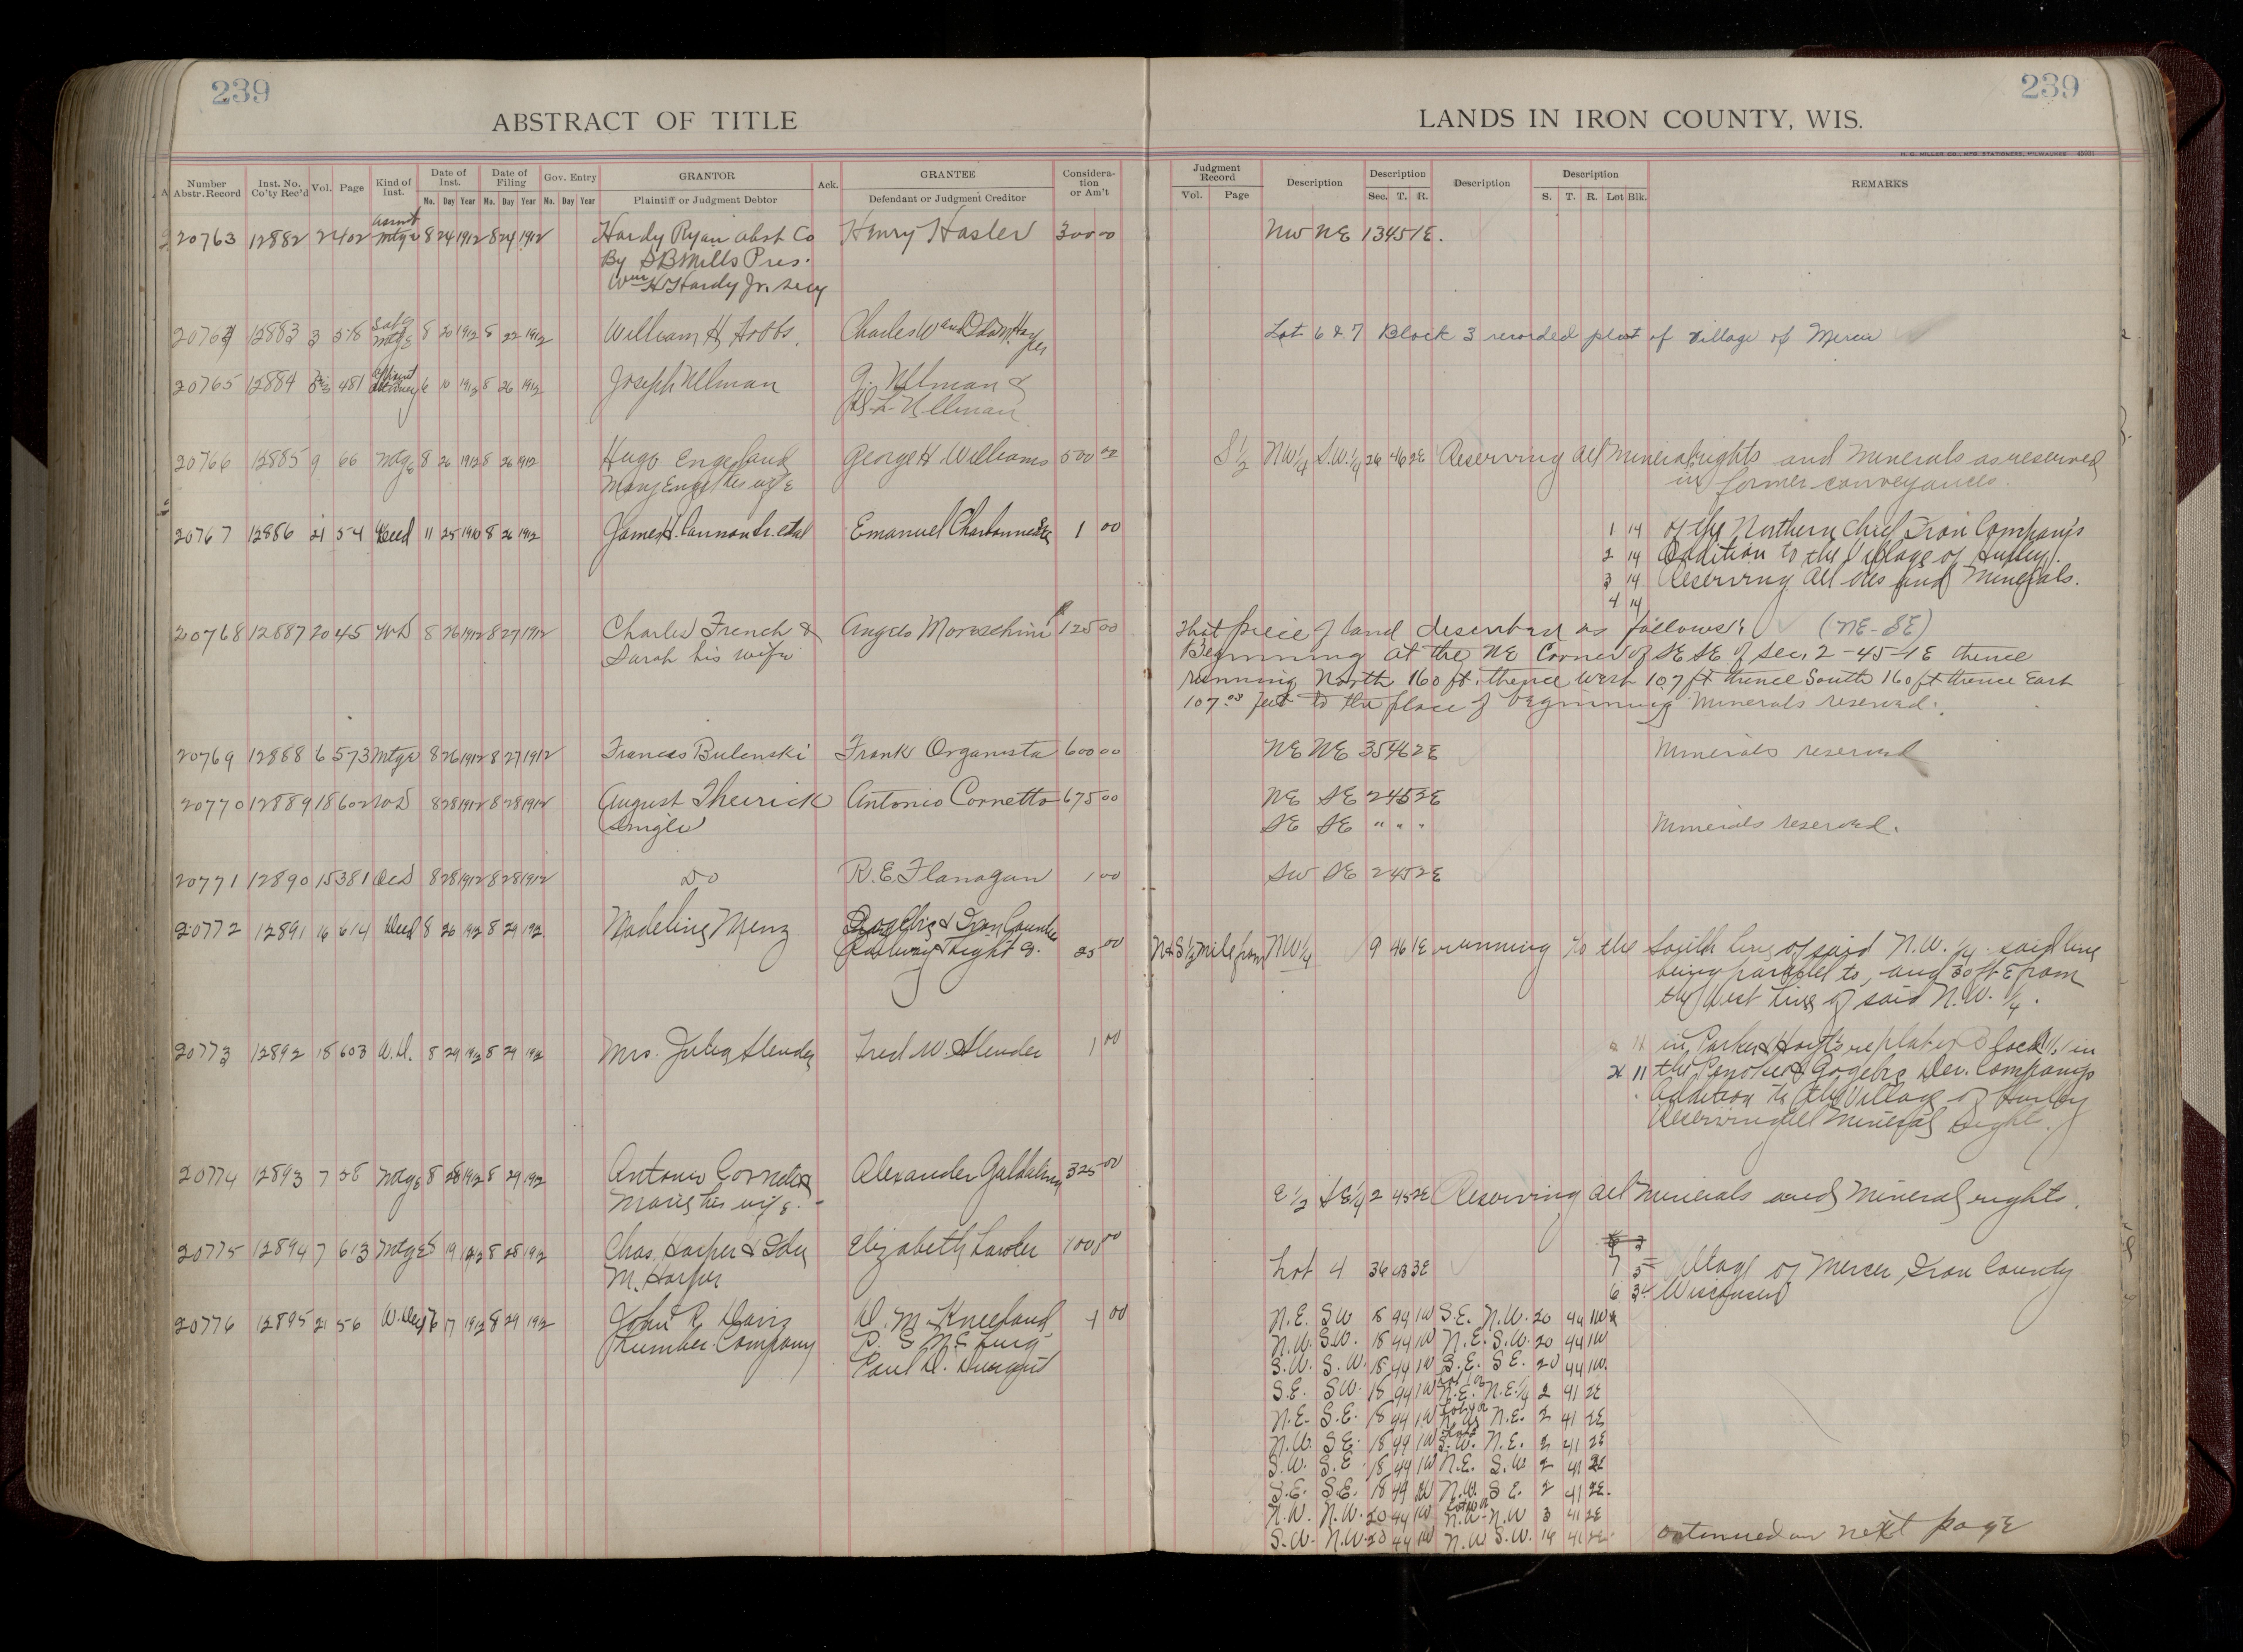 239
239
ABSTRACT OF TITLE
LANDS IN IRON COUNTY, WIS.
H. C. MILLER CO., MFG. STATIONERS, MILWAUKEE
Number Abstr. Record Inst. No. Co'ty Rec'd Vol. Page Kind of Inst. Date of Inst. Mo. Day Year Date of Filing Mo. Day Year Gov. Entry Mo. Day Year GRANTOR Plaintiff or Judgment Debtor Ack. GRANTEE Defendant or Judgment Creditor Consideration or Am't Judgment Record Vol. Page Description Description Sec. T. R. Description Description S. T. R. Lot Blk. REMARKS
20763 12882 2 402 Asmt Mtge 8 24 1912 8 24 1912 Hardy Ryan Abst Co Henry Hasler 300 00 NW NE 13 45 1E.
By S B Mills Pres.
Wm H Hardy Jr. Secy
20764 12883 3 518 Satg Mtge 8 20 1912 8 22 1912 William H Hobbs. Charles W and Ida M Harper Lot 6 & 7 Block 3 recorded plat of Village of Mercer
20765 12884 481 Attorney 6 10 1912 8 26 1912 Joseph Ullman J. Ullman &
S. L. Ullman
20766 12885 9 66 Mtge 8 26 1912 8 26 1912 Hugo Engeland George H Williams 500 00 S 1/2 NW 1/4 S.W. 1/4 26 46 2E Reserving all mineral rights and minerals as reserved
Mary his wife in former conveyances.
20767 12886 21 54 Deed 11 25 1910 8 26 1912 James H. Cannon Sr. etal Emanuel Charbonneau 1 00 1 14 of the Northern Chief Iron Company's
2 14 Addition to the Village of Hurley.
3 14 Reserving all ores and Minerals.
4 14
20768 12887 20 45 WD 8 26 1912 8 27 1912 Charles French & Angelo Moreschini 125 00 That piece of land described as follows: (NE-SE)
Sarah his wife Beginning at the NE Corner of SE SE of Sec. 2-45-1E thence
running North 160 ft. thence West 107 ft thence South 160 ft thence East
107.00 feet to the place of beginning Minerals reserved.
20769 12888 6 573 Mtge 8 26 1912 8 27 1912 Frances Bulenski Frank Organista 600 00 NE NE 35 46 2E Minerals reserved
20770 12889 18 602 WD 8 28 1912 8 28 1912 August Theirick Antonio Cornetto 675 00 NE SE 2 45 2E
Single SE SE " " " Minerals reserved.
20771 12890 15 381 QCD 8 28 1912 8 28 1912 Do R. E. Flanagan 1 00 SW SE 2 45 2E
20772 12891 16 614 Deed 8 26 1912 8 29 1912 Madeline Menz Gogebic & Iron Counties
Railway & Light Co. 25 00 N & S 1/2 mile from NW 1/4 9 46 1E running to the South line of said N.W. 1/4 said line
being parallel to, and 30 ft E from
the West line of said N.W. 1/4.
20773 12892 18 603 W.D. 8 29 1912 8 29 1912 Mrs. Julia Slender Fred W. Slender 1 00 11 in Parker & Hoyt's replat of Block 11 in
11 the Penokee & Gogebic Dev. Company's
Addition to the Village of Hurley
Reserving all Mineral Right.
20774 12893 7 58 Mtge 8 28 1912 8 29 1912 Antonio Cornetto Alexander 325 00
Marie his wife. E 1/2 SE 1/4 2 45 2E Reserving all minerals and Mineral rights.
20775 12894 7 613 Mtge 8 19 1912 8 28 1912 Chas. Harper & Ida Elizabeth Lawler 100 00
M. Harper Lot 4 36 43 3E 7 3 Village of Mercer, Iron County
6 3 Wisconsin
20776 12895 21 56 W. Deed 6 17 1912 8 29 1912 John R. Davis D. M. Kneeland 1 00 N.E. SW 18 44 1W S.E. N.W. 20 44 1W
Lumber Company P. S. McLurg N.W. S.W. 18 44 1W N.E. S.W. 20 44 1W
Paul D. Durant S.W. S.W. 18 44 1W S.E. SE. 20 44 1W.
S.E. SW. 18 44 1W N.E. N.E. 1/4 2 41 2E
N.E. S.E. 18 44 1W N.W. N.E. 2 41 2E
N.W. SE. 18 44 1W S.W. N.E. 2 41 2E
S.W. S.E. 18 44 1W N.E. S.W 2 41 2E
S.E. S.E. 18 44 1W N.W. S E. 2 41 2E.
N.W. N.W. 20 44 1W N.W. N.W 3 41 2E
S.W. N.W. 20 44 1W N.W. S.W. 14 41 2E continued on next page